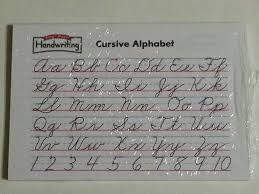 Handwriting
Cursive Alphabet
Aa Bb Cc Dd Ee Ff
Gg Hh Ii Jj Kk
Ll Mm Nn Oo Pp
Qq Rr Ss Tt Uu
Vv Ww Xx Yy Zz
1 2 3 4 5 6 7 8 9 10